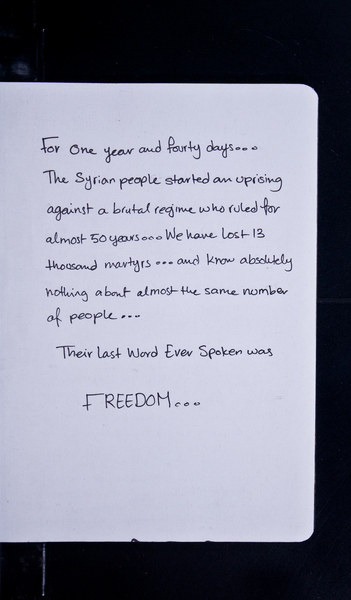 For one year and fourty days...
The Syrian people started an uprising
against a brutal regime who ruled for
almost 50 years... We have lost 13
thousand martyrs ... and know absolutely
nothing about almost the same number
of people ...
Their Last Word Ever Spoken was
FREEDOM...